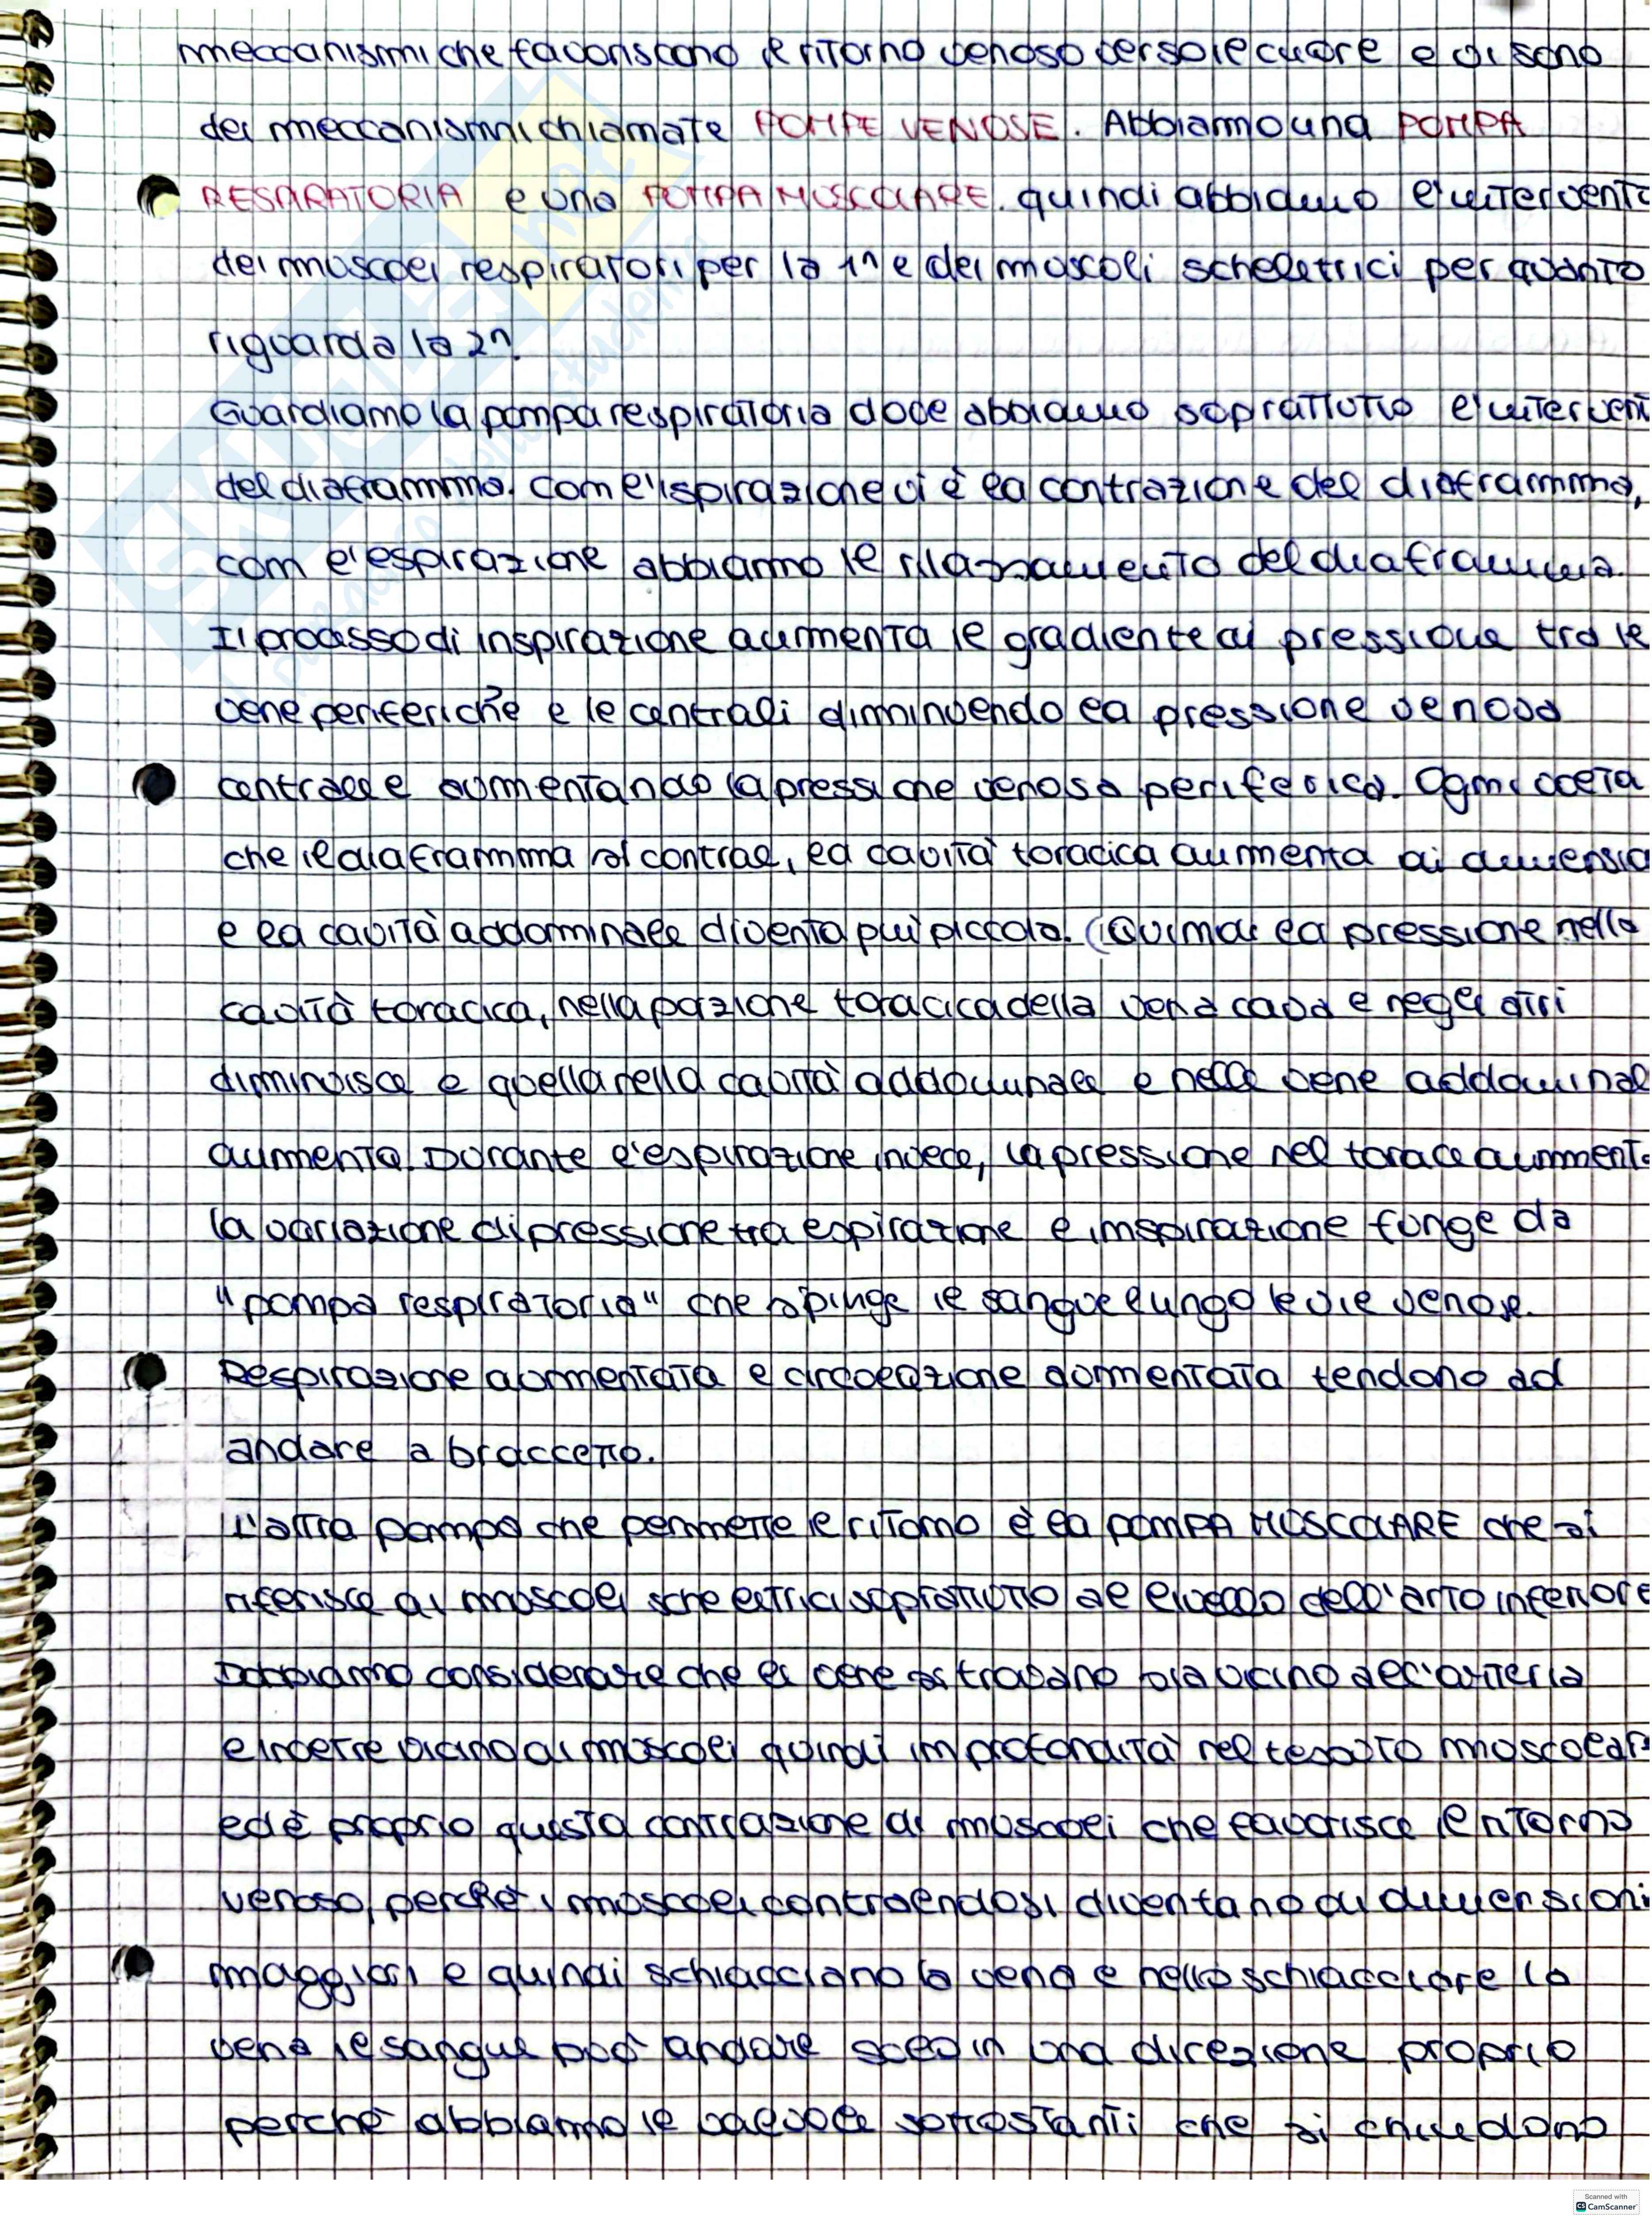 meccanismi che favoriscono il ritorno venoso verso il cuore e ci sono
dei meccanismi chiamate POMPE VENOSE. Abbiamo una POMPA
RESPIRATORIA e una POMPA MUSCOLARE. quindi abbiamo l'intervento
dei muscoli respiratori per la 1ª e dei muscoli scheletrici per quanto
riguarda la 2ª.
Guardiamo la pompa respiratoria dove abbiamo soprattutto l'intervent
del diaframma. Com l'ispirazione vi è la contrazione del diaframma,
com l'espirazione abbiamo il rilassamento del diaframma.
Il processo di inspirazione aumenta il gradiente di pressione tra le
vene periferiche e le centrali diminuendo la pressione venosa
centrale e aumentando la pressione venosa periferica. Ogni volta
che il diaframma si contrae, la cavità toracica aumenta di dimensio
e la cavità addominale diventa più piccola. (Quindi la pressione nella
cavità toracica, nella pozione toracica della vena cava e negli atri
diminuisce e quella nella cavità addominale e nelle vene addominal
aumenta. Durante l'espirazione invece, la pressione nel torace aumenta
la variazione di pressione tra espirazione e inspirazione funge da
"pompa respiratoria" che spinge il sangue lungo le vie venose.
Respirazione aumentata e circolazione aumentata tendono ad
andare a braccetto.
L'altra pompa che permette il ritorno è la POMPA MUSCOLARE che si
riferisce ai muscoli scheletrici soprattutto al livello dell'arto inferiore
Dobbiamo considerare che le vene si trovano sia vicino all'arteria
e inoltre vicino ai muscoli quindi in profondità nel tessuto muscolar
ed è proprio questa contrazione di muscoli che favorisce il ritorno
venoso, perchè i muscoli contraendosi diventano di dimensioni
maggiori e quindi schiacciano la vena e nello schiacciare la
vena il sangue può andare solo in una direzione proprio
perchè abbiamo le valvole sottostanti che si chiudono
Scanned with
CS CamScanner